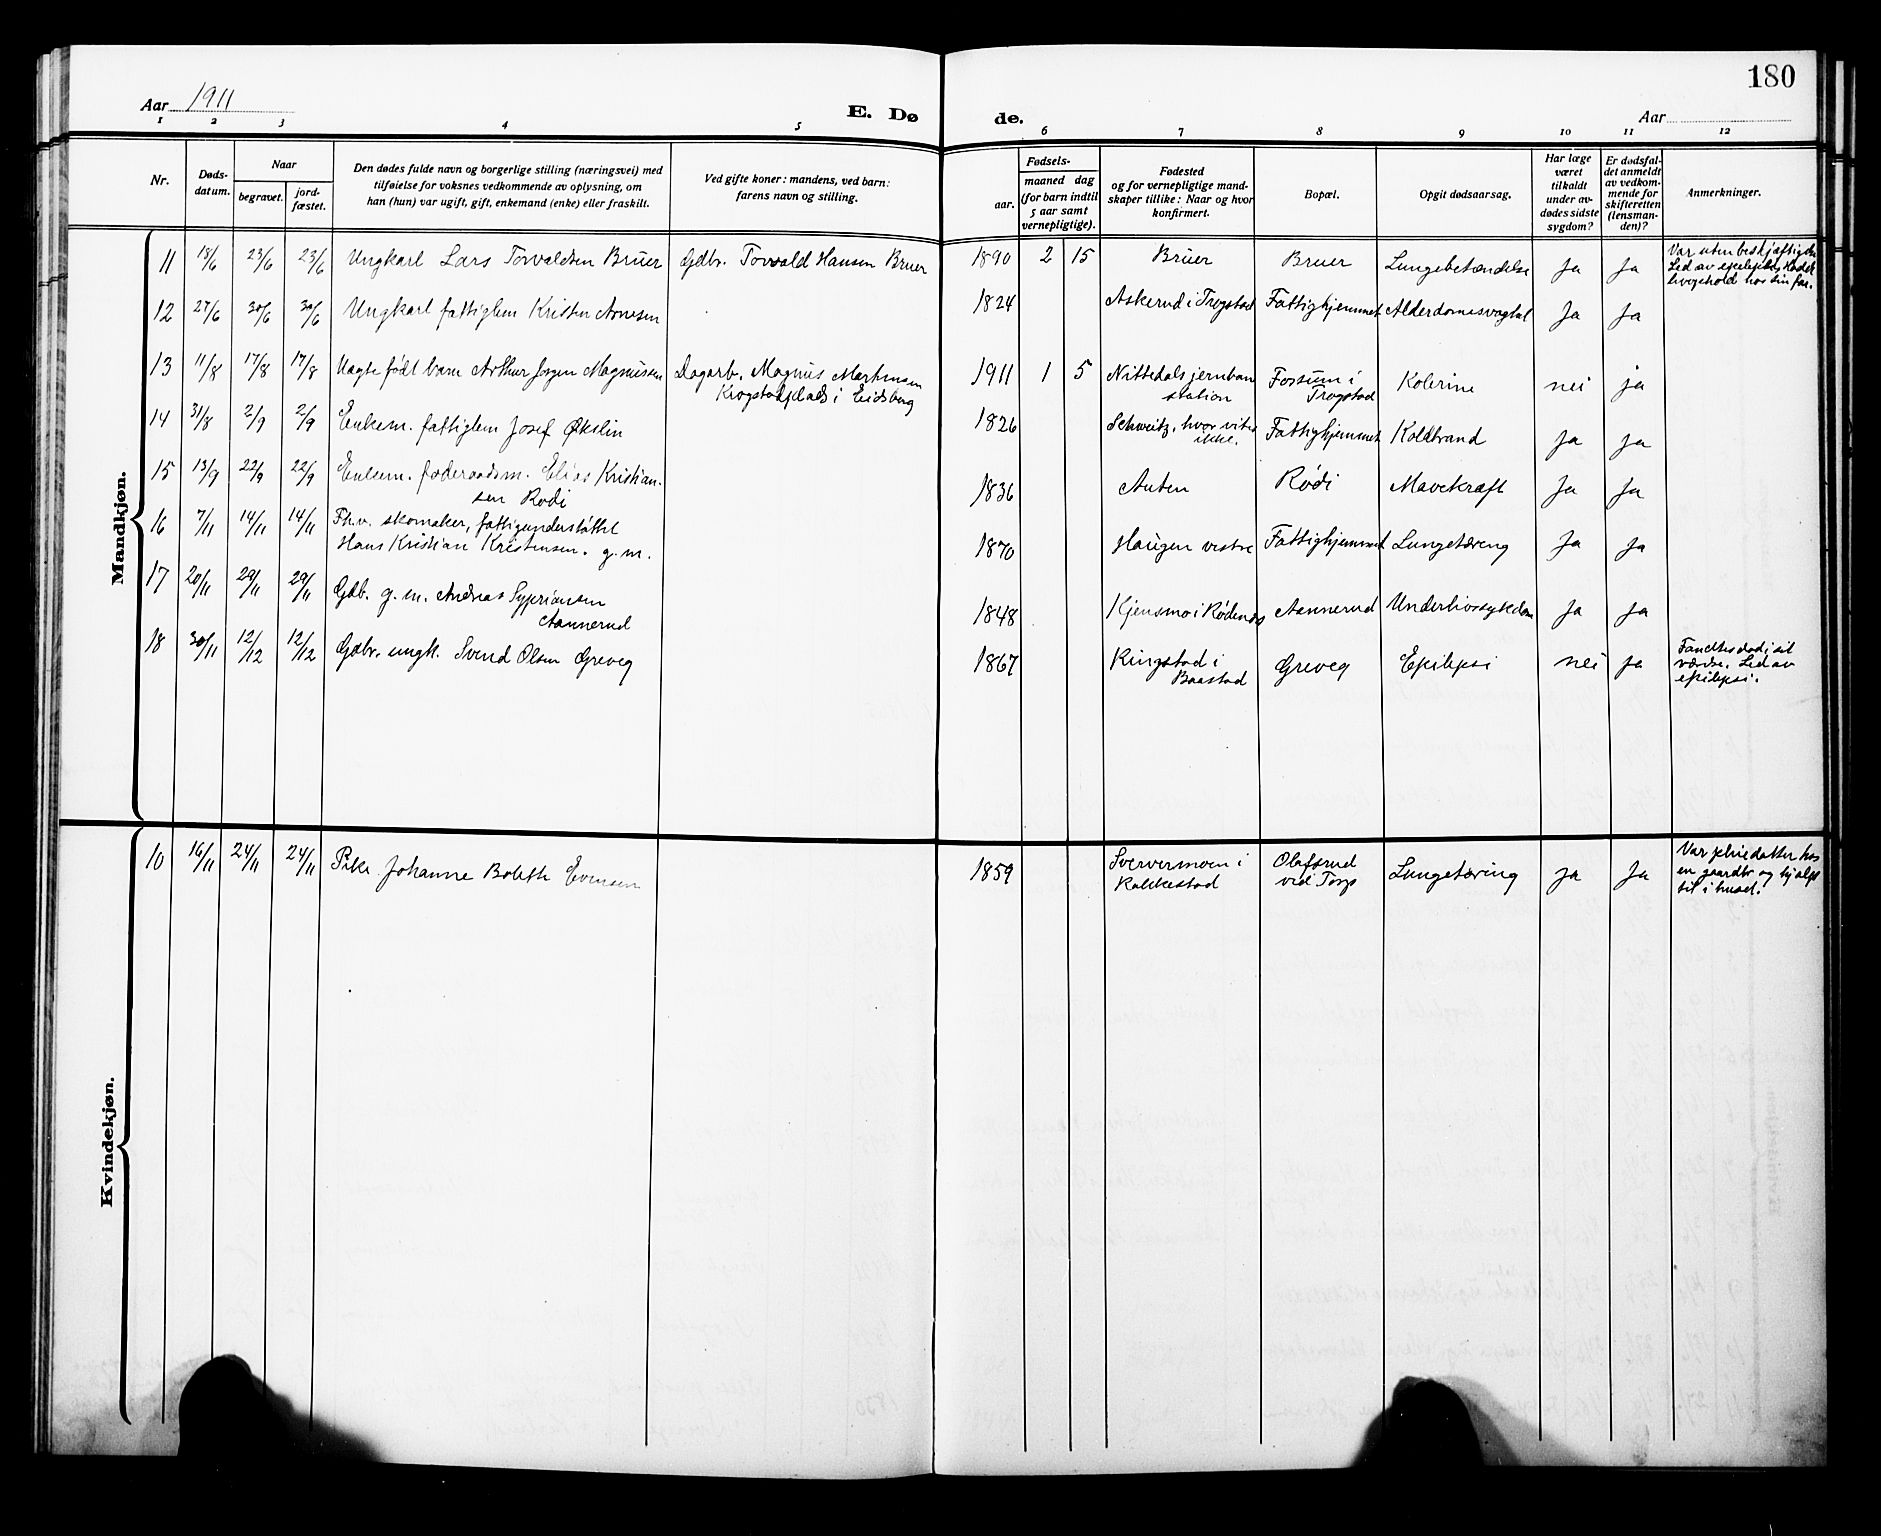 180
Aar 1911
E. Dø
de.
Aar
1 2 3 4 5 6 7 8 9 10 11 12
Nr.
Døds-
datum.
Naar
begravet.
jord-
fæstet.
Den dødes fulde navn og borgerlige stilling (næringsvei) med
tilføielse for voksnes vedkommende av oplysning, om
han (hun) var ugift, gift, enkemand (enke) eller fraskilt.
Ved gifte koner: mandens, ved barn:
farens navn og stilling.
Fødsels-
aar.
maaned dag
(for barn indtil
5 aar samt
vernepligtige).
Fødested
og for vernepligtige mand-
skaper tillike: Naar og hvor
konfirmert.
Bopæl.
Opgit dødsaarsag.
Har læge
været
tilkaldt
under av-
dødes sidste
sygdom?
Er dødsfal-
det anmeldt
av vedkom-
mende for
skifteretten
(lensman-
den)?
Anmerkninger.
Mandkjøn.
11 18/6 23/6 23/6 Ungkarl Lars Torvaldsen Bruer Gdbr. Torvald Hansen Bruer 1890 2 15 Bruer Bruer Lungebetændelse Ja Ja Var uten beskjæftigelse
Led av epilepsi
livophold hos sin far.
12 27/6 30/6 30/6 Ungkarl fattiglem Kristen Arnesen 1824 Askerud i Trøgstad Fattighjemmet Alderdomssvaghet Ja Ja
13 11/8 17/8 17/8 Uegte født barn Arthur Jørgen Magnussen Dagarb. Magnus Martinsen 1911 1 5 Nittedals jernban Fossum i Kolerine nei ja
Krogstadplads i Eidsberg station Trøgstad
14 31/8 2/9 2/9 Enkem. fattiglem Josef Økslin 1826 Schweitz, hvor vites Fattighjemmet Koldbrand Ja Ja
ikke.
15 13/9 22/9 22/9 Enkem. føderaadsm. Elias Kristian-
sen Rødi 1836 Auten Rødi Mavekræft Ja Ja
16 7/11 14/11 14/11 Fh.v. skomaker, fattigunderstøttet
Hans Kristian Kristensen. g. m. 1870 Haugen vestre Fattighjemmet Lungetæring Ja Ja
17 20/11 29/11 29/11 Gdb. g. m. Andreas Sypriansen
Aannerud 1848 Kjensmo i Rødenæs Aannerud Underlivssykdom Ja Ja
18 30/11 12/12 12/12 Gdbr. ungk. Svend Olsen Greveg 1867 Ringstad i Greveg Epilepsi nei Ja Fandtes død i sit
Baastad værelse. Led av
epilepsi.
Kvindekjøn.
10 16/11 24/11 24/11 Pike Johanne Boleth Evensen 1859 Sverversmoen i Olafsrud Lungetæring Ja Ja Var pleiedatter hos
Rakkestad ved Torp en gaardbr og hjalp
til i huset.